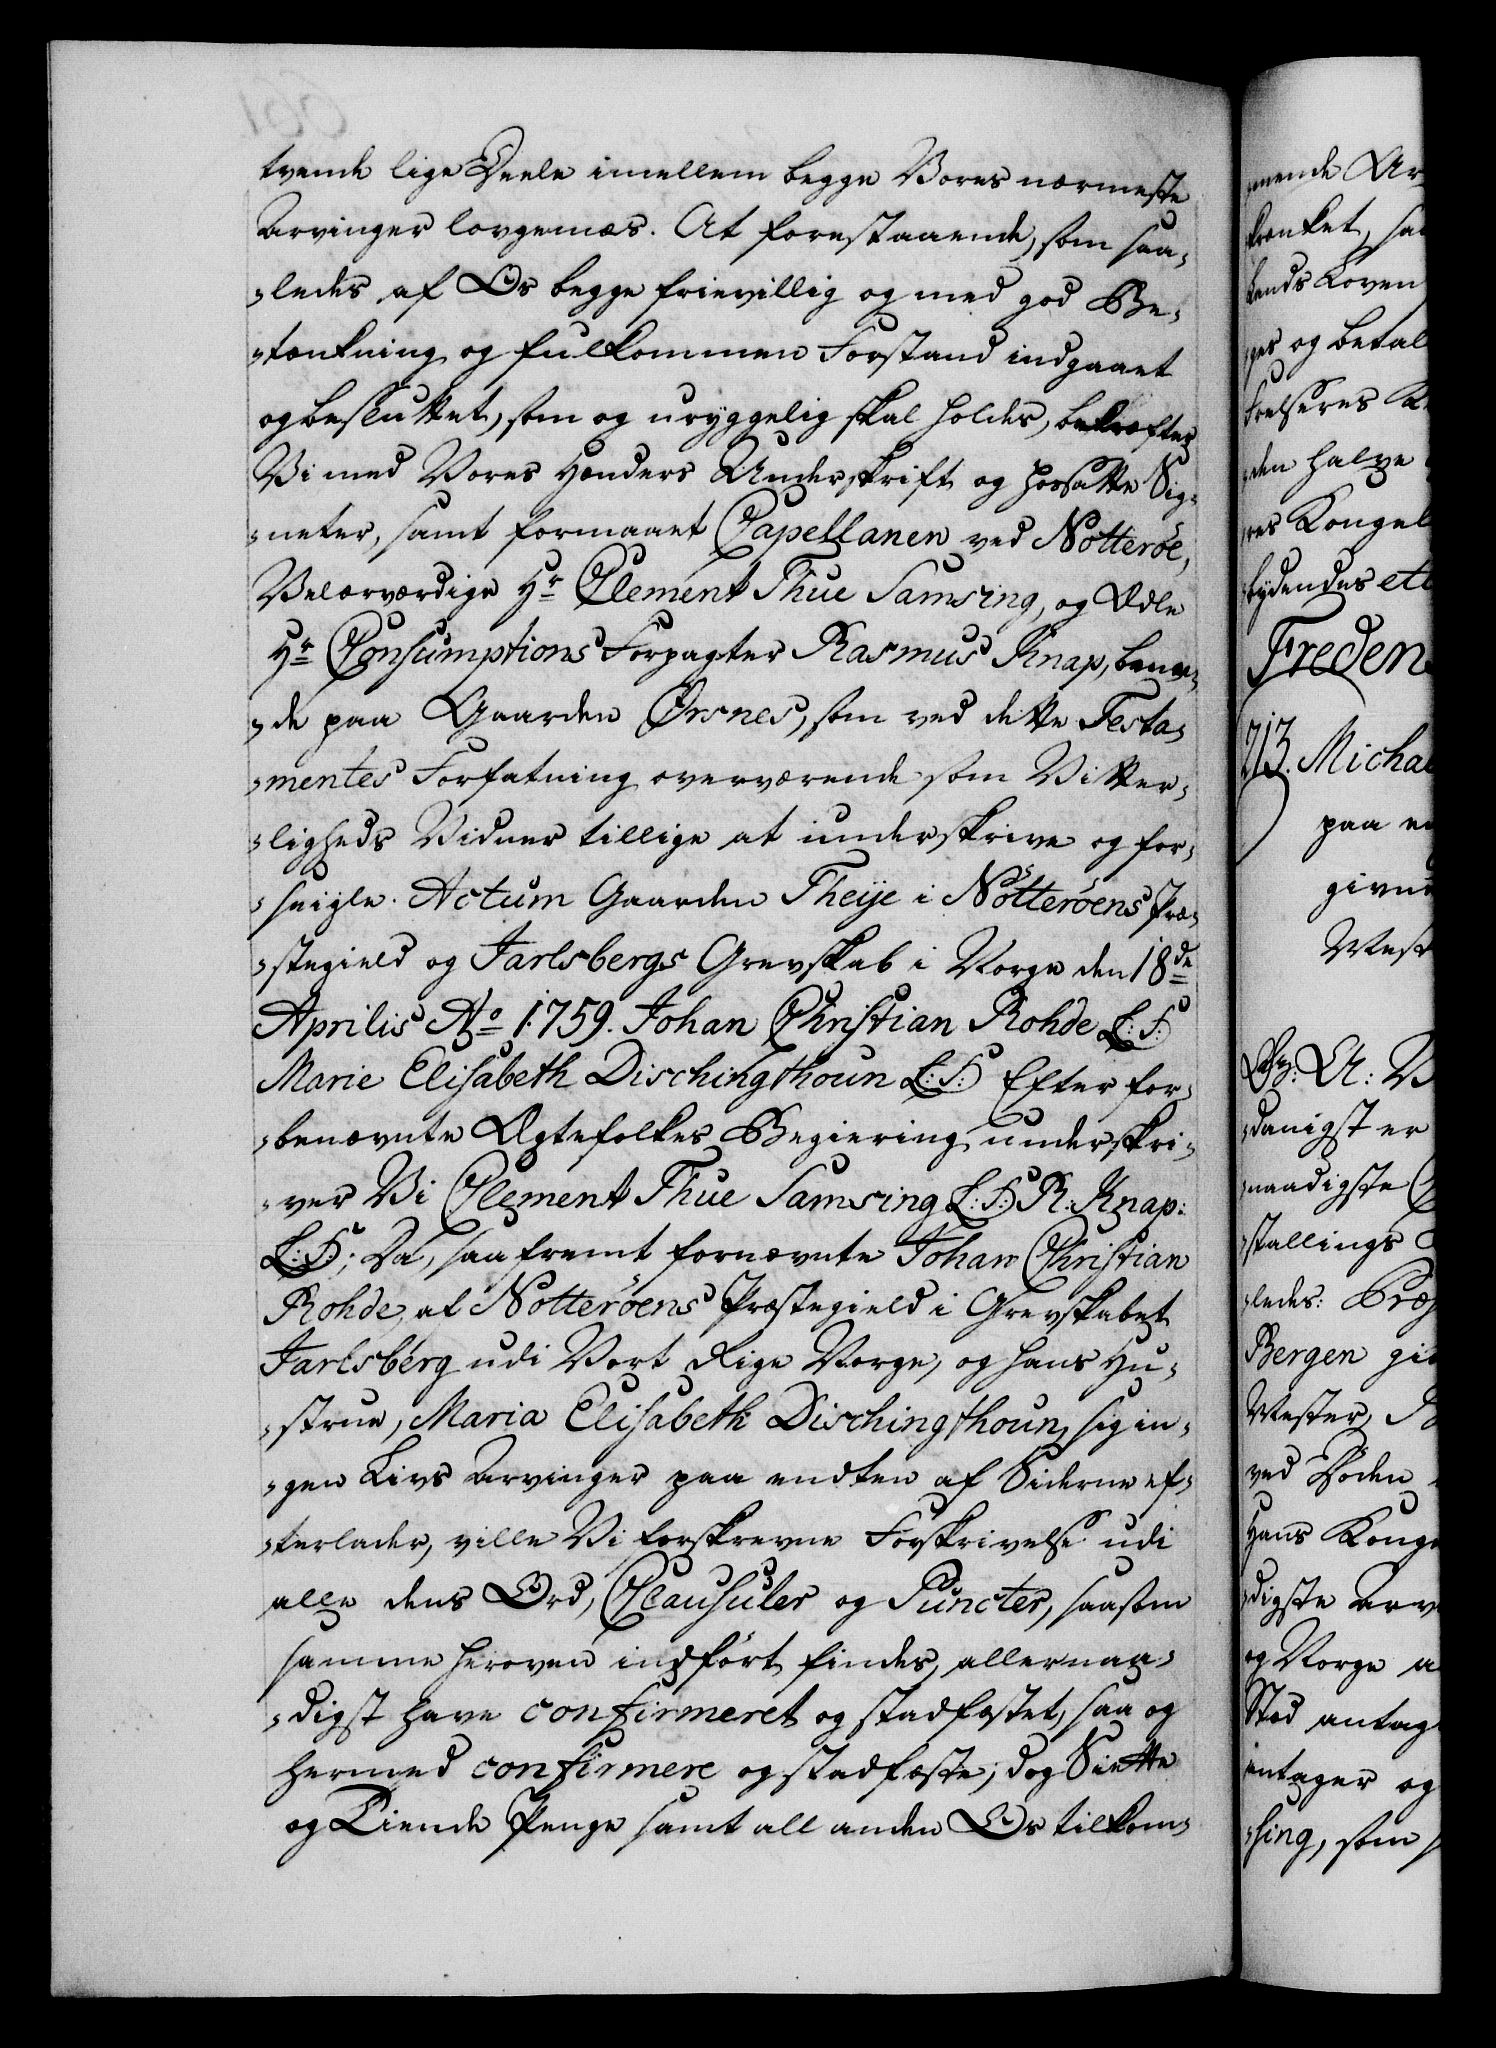 tvende lige Deele imellem begge Vores nærmeste
Arvinger lovgemæs. At forestaaende, som saa-
-ledes af Os begge frievillig og med god Be-
-tænkning og fulkommen Forstand indgaaet
og besluttet, som og uryggelig skal holdes, bekræfter
Vi med Vores Hænders Underskrift og hossatte Sig-
-neter, samt formaaet Capellanen ved Nötteröe,
Velærværdige Hr. Clement Thue Samsing, og Ædle
Hr. Consumptions Forpagter Rasmus Knap, boen-
-de paa Gaarden Ørsnes, som ved dette Testa-
-mentes Forfatning overværende som Vitter-
-ligheds Vidner tillige at underskrive og for-
-seigle. Actum Gaarden Theije i Nötteröens Præ-
-stegield og Jarlsbergs Grevskab i Norge den 18de
Aprilis Ao 1759. Johan Christian Rohde L:S:
Marie Elisabeth Dischingthoun L:S: Efter for-
-benævnte Ægtefolkes Begiering underskri-
-ver Vi Clement Thue Samsing L:S: R: Knap:
L:S:; Da, saafremt fornævnte Johan Christian
Rohde, af Nötteröens Præstegield i Grevskabet
Jarlsberg udi Vort Rige Norge, og hans Hu-
-strue, Maria Elisabeth Dischingthoun, sig in-
-gen Livs Arvinger paa endten af Siderne ef-
-terlader, ville Vi forskrevne Forskrivelse udi
alle dens Ord, Clausuler og Puncter, saasom
samme heroven indført findes, allernaa-
-digst have confirmeret og stadfæstet, saa og
hermed confirmere og stadfæste; dog Siette
og Tiende Penge samt all anden Os tilkom-
mende Ar
krænket, sa
Lands Loven
-ges og betal
Frelseres K
-den halve
-res Kongel
-bydendes etc
Freden
213. Micha
paa e
givn
West
Gr: A: V
-danigst er
-naadigste
-stallings
-ledes:
Bergen gi
Wester,
ved Döden
Hans Kong
-digste Arv
og Norge a
Sted antag
intager og
-sing, som